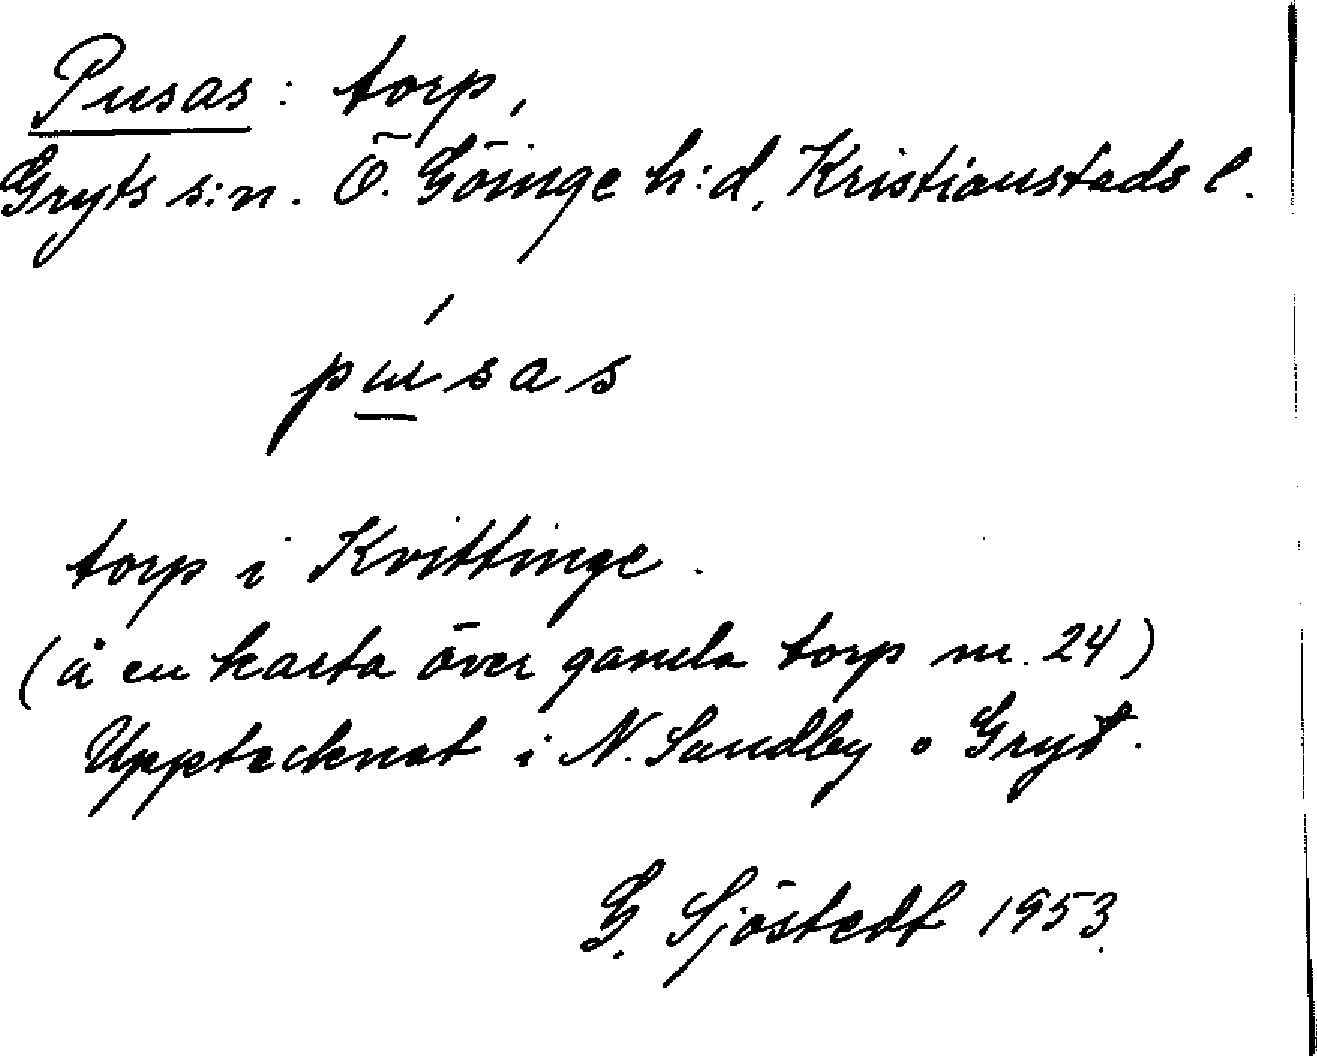 Pusas: torp,
Gryts s:n. Ö. Göinge h:d, Kristianstads l.
púsas
torp i Kvittinge.
(å en karta över gamla torp nr. 24)
Upptecknat i N. Sandby o Gryt.
G. Sjöstedt 1953.